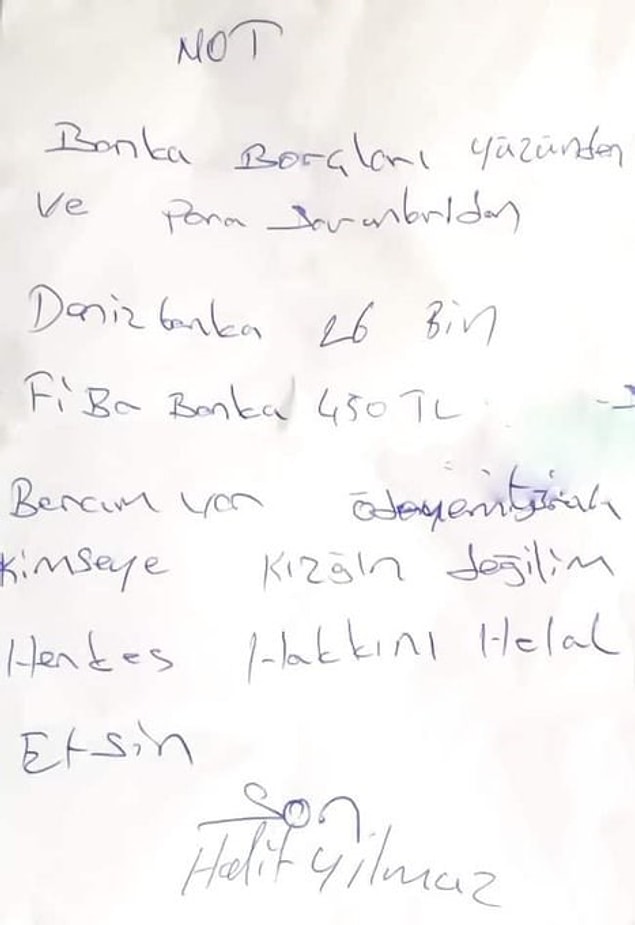 NOT
Banka Borçları yüzünden
Ve Para
Deniz banka 26 Bin
FiBa Banka 450 TL
Borcum var ödeyemiyorum
Kimseye Kızğın değilim
Herkes Hakkını Helal
Etsin
Son
Halit Yılmaz